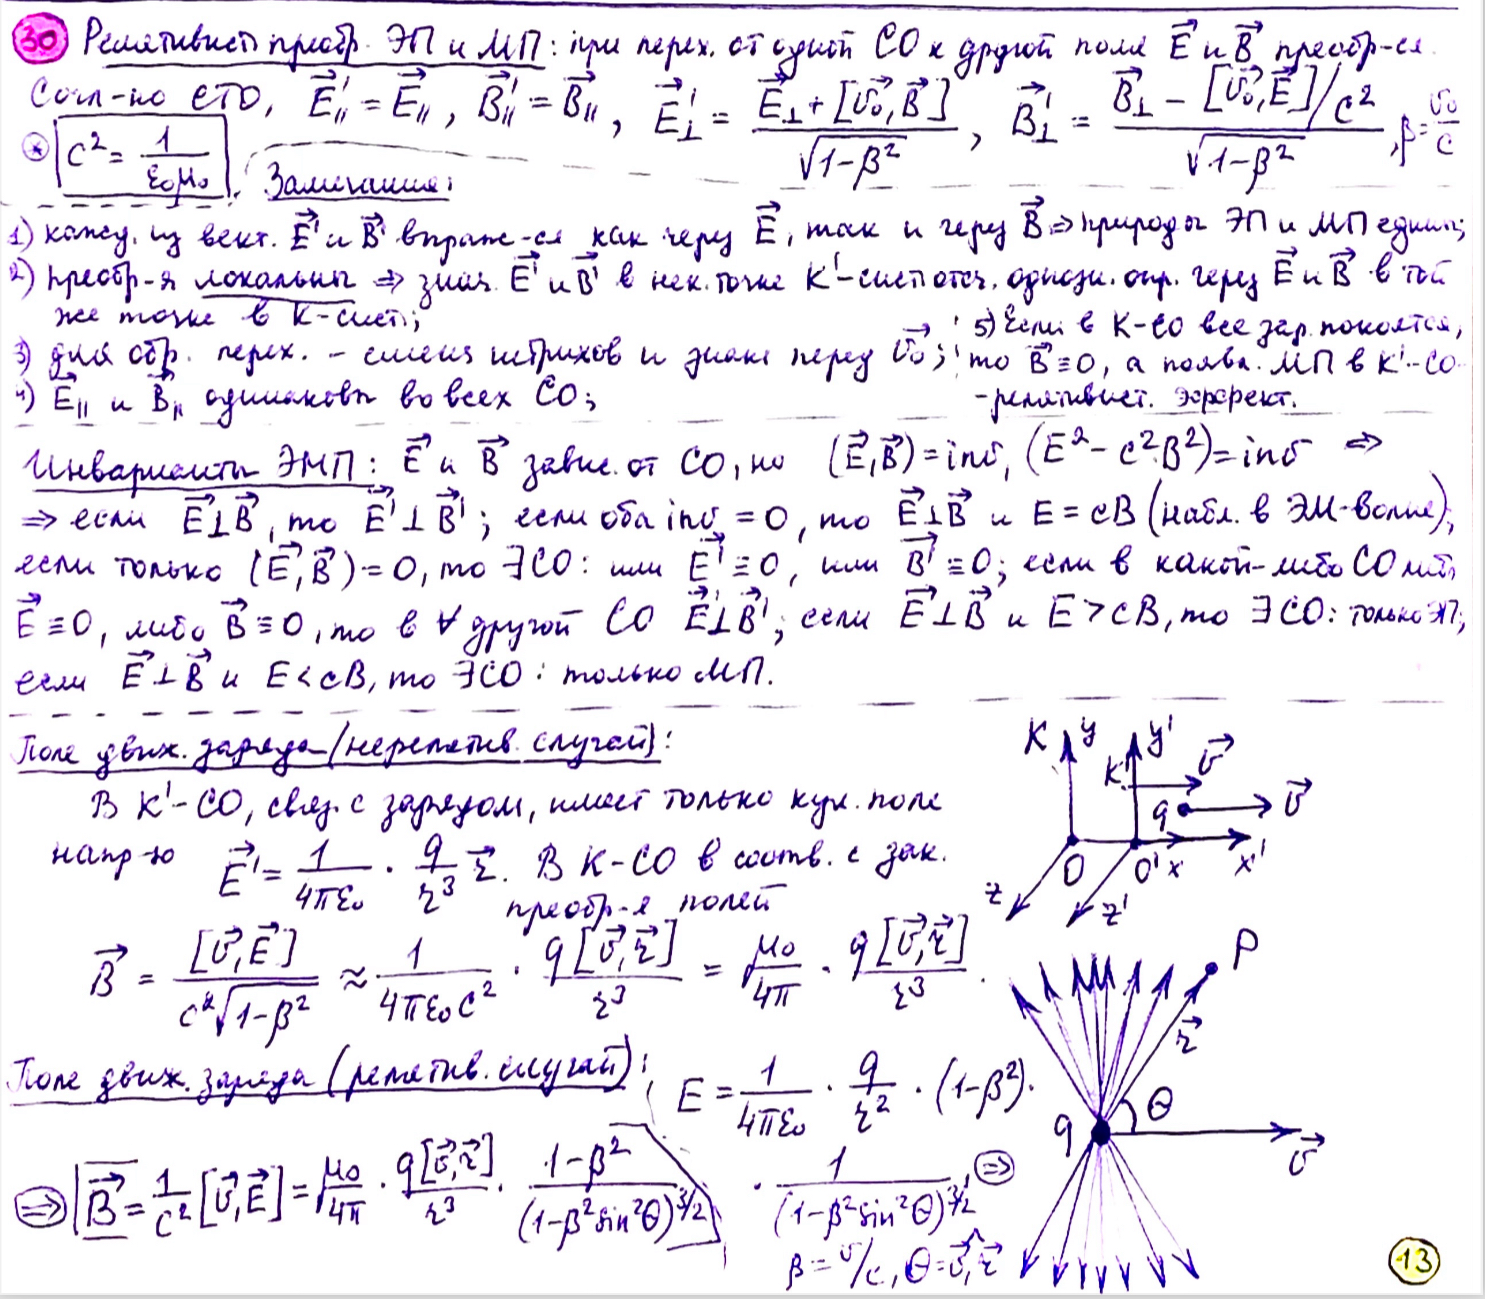 30 Релятивист. преобр. ЭП и МП: при перех. от одной СО к другой поля E⃗ и B⃗ преобр-ся.
Согл-но СТО, E⃗'∥ = E⃗∥, B⃗'∥ = B⃗∥, E⃗'⊥ = (E⃗⊥ + [v⃗₀, B⃗]) / √(1-β²), B⃗'⊥ = (B⃗⊥ - [v⃗₀, E⃗]/c²) / √(1-β²), β = v₀/c
* c² = 1/(ε₀μ₀). Замечания:
1) кажд. из вект. E⃗' и B⃗' выраж-ся как через E⃗, так и через B⃗ ⇒ природа ЭП и МП едина;
2) преобр-я локальны ⇒ знач. E⃗' и B⃗' в нек. точке K'-сист. отсч. однозн. опр. через E⃗ и B⃗ в той
же точке в K-сист.;
3) для обр. перех. - смена штрихов и знака перед v⃗₀;
4) E⃗∥ и B⃗∥ одинаковы во всех СО;
5) Если в K-СО все зар. покоятся,
то B⃗ ≡ 0, а появл. МП в K'-СО
- релятивист. эффект.
Инварианты ЭМП: E⃗ и B⃗ завис. от СО, но (E⃗, B⃗) = inv, (E² - c²B²) = inv ⇒
⇒ если E⃗⊥B⃗, то E⃗'⊥B⃗'; если оба inv = 0, то E⃗⊥B⃗ и E = cB (набл. в ЭМ-волне);
если только (E⃗, B⃗) = 0, то ∃СО: или E⃗' ≡ 0, или B⃗' ≡ 0; если в какой-либо СО либо
E⃗ ≡ 0, либо B⃗ ≡ 0, то в ∀ другой СО E⃗'⊥B⃗'; если E⃗⊥B⃗ и E > cB, то ∃СО: только ЭП;
если E⃗⊥B⃗ и E < cB, то ∃СО: только МП.
Поле движ. заряда (нерелятив. случай):
В K'-СО, связ. с зарядом, имеет только кул. поле
напр-ю E⃗' = 1/(4πε₀) · q/r³ r⃗. В K-СО в соотв. с зак.
преобр-я полей
B⃗ = [v⃗, E⃗] / (c²√(1-β²)) ≈ 1/(4πε₀c²) · q[v⃗, r⃗]/r³ = μ₀/4π · q[v⃗, r⃗]/r³.
K y y'
K' v⃗
q v⃗
O O' x x'
z z'
Поле движ. заряда (релятив. случай):
E = 1/(4πε₀) · q/r² · (1-β²)·
· 1/(1-β²sin²θ)^3/2, ⇒
⇒ B⃗ = 1/c² [v⃗, E⃗] = μ₀/4π · q[v⃗, r⃗]/r³ · (1-β²)/(1-β²sin²θ)^3/2
β = v/c, θ = v⃗,^r⃗
P
r⃗
q θ
v⃗
13